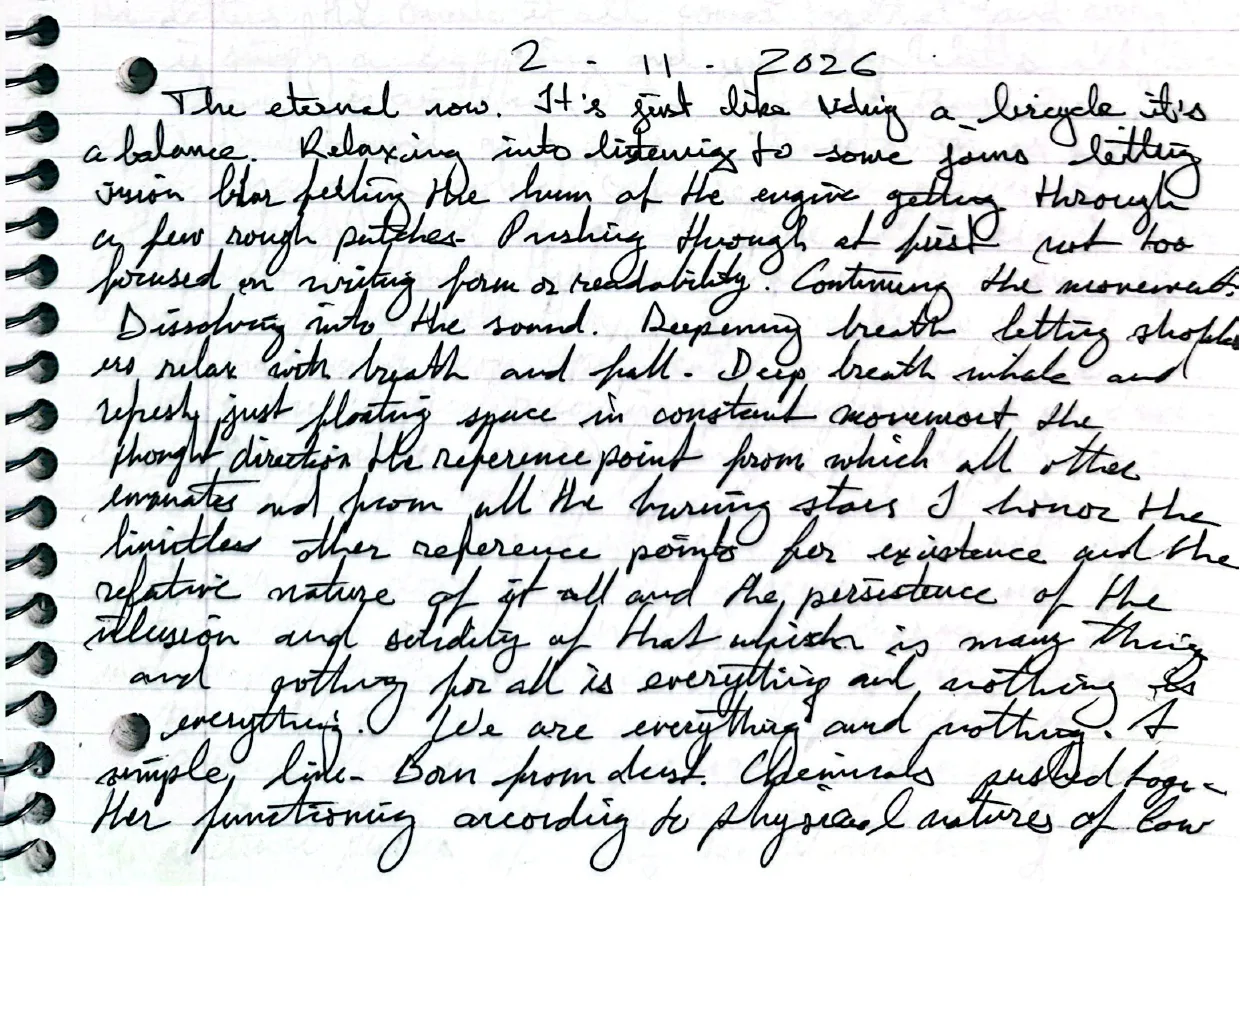 2 - 11 - 2026
The eternal now. It's just like riding a bicycle it's
a balance. Relaxing into listening to some jams letting
vision blur felling the hum of the engine getting through
a few rough patches. Pushing through at first not too
focused on writing form or readability. Continuing the movement.
Dissolving into the sound. Deepening breath letting should
ers relax with breath and fall. Deep breath inhale and
refresh just floating space in constant movement the
thought direction the reference point from which all other
emanates and from all the burning stars I honor the
limitless other reference points for existence and the
relative nature of it all and the persistence of the
illusion and solidity of that which is many thing
and nothing for all is everything and nothing is
everything. We are everything and nothing. A
simple line. Born from dust. Chemicals pushed toge-
ther functioning according to physical natures of law